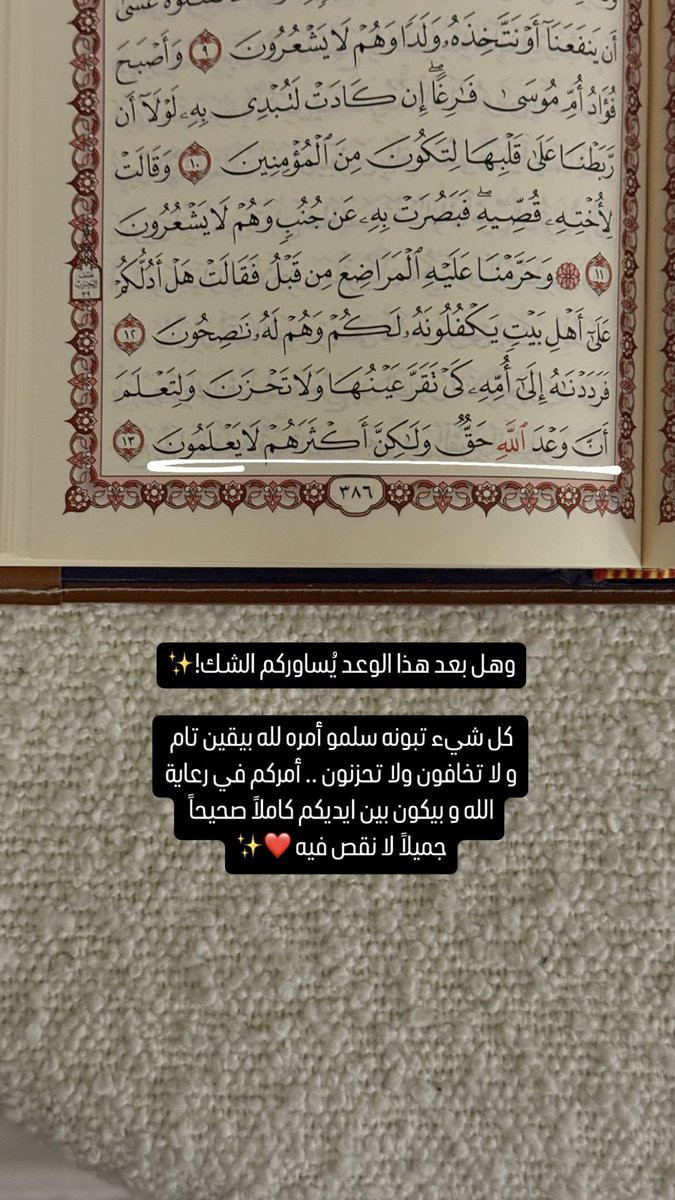 أَن يَنفَعَنَآ أَوۡ نَتَّخِذَهُۥ وَلَدٗا وَهُمۡ لَا يَشۡعُرُونَ ٩ وَأَصۡبَحَ
فُؤَادُ أُمِّ مُوسَىٰ فَٰرِغًاۖ إِن كَادَتۡ لَتُبۡدِي بِهِۦ لَوۡلَآ أَن
رَّبَطۡنَا عَلَىٰ قَلۡبِهَا لِتَكُونَ مِنَ ٱلۡمُؤۡمِنِينَ ١٠ وَقَالَتۡ
لِأُخۡتِهِۦ قُصِّيهِۖ فَبَصُرَتۡ بِهِۦ عَن جُنُبٖ وَهُمۡ لَا يَشۡعُرُونَ
١١ ۞ وَحَرَّمۡنَا عَلَيۡهِ ٱلۡمَرَاضِعَ مِن قَبۡلُ فَقَالَتۡ هَلۡ أَدُلُّكُمۡ
عَلَىٰٓ أَهۡلِ بَيۡتٖ يَكۡفُلُونَهُۥ لَكُمۡ وَهُمۡ لَهُۥ نَٰصِحُونَ ١٢
فَرَدَدۡنَٰهُ إِلَىٰٓ أُمِّهِۦ كَيۡ تَقَرَّ عَيۡنُهَا وَلَا تَحۡزَنَ وَلِتَعۡلَمَ
أَنَّ وَعۡدَ ٱللَّهِ حَقّٞ وَلَٰكِنَّ أَكۡثَرَهُمۡ لَا يَعۡلَمُونَ ١٣
٣٨٦
وهل بعد هذا الوعد يُساوركم الشك!✨
كل شيء تبونه سلمو أمره لله بيقين تام
و لا تخافون ولا تحزنون .. أمركم في رعاية
الله و بيكون بين ايديكم كاملاً صحيحاً
جميلاً لا نقص فيه ❤️✨